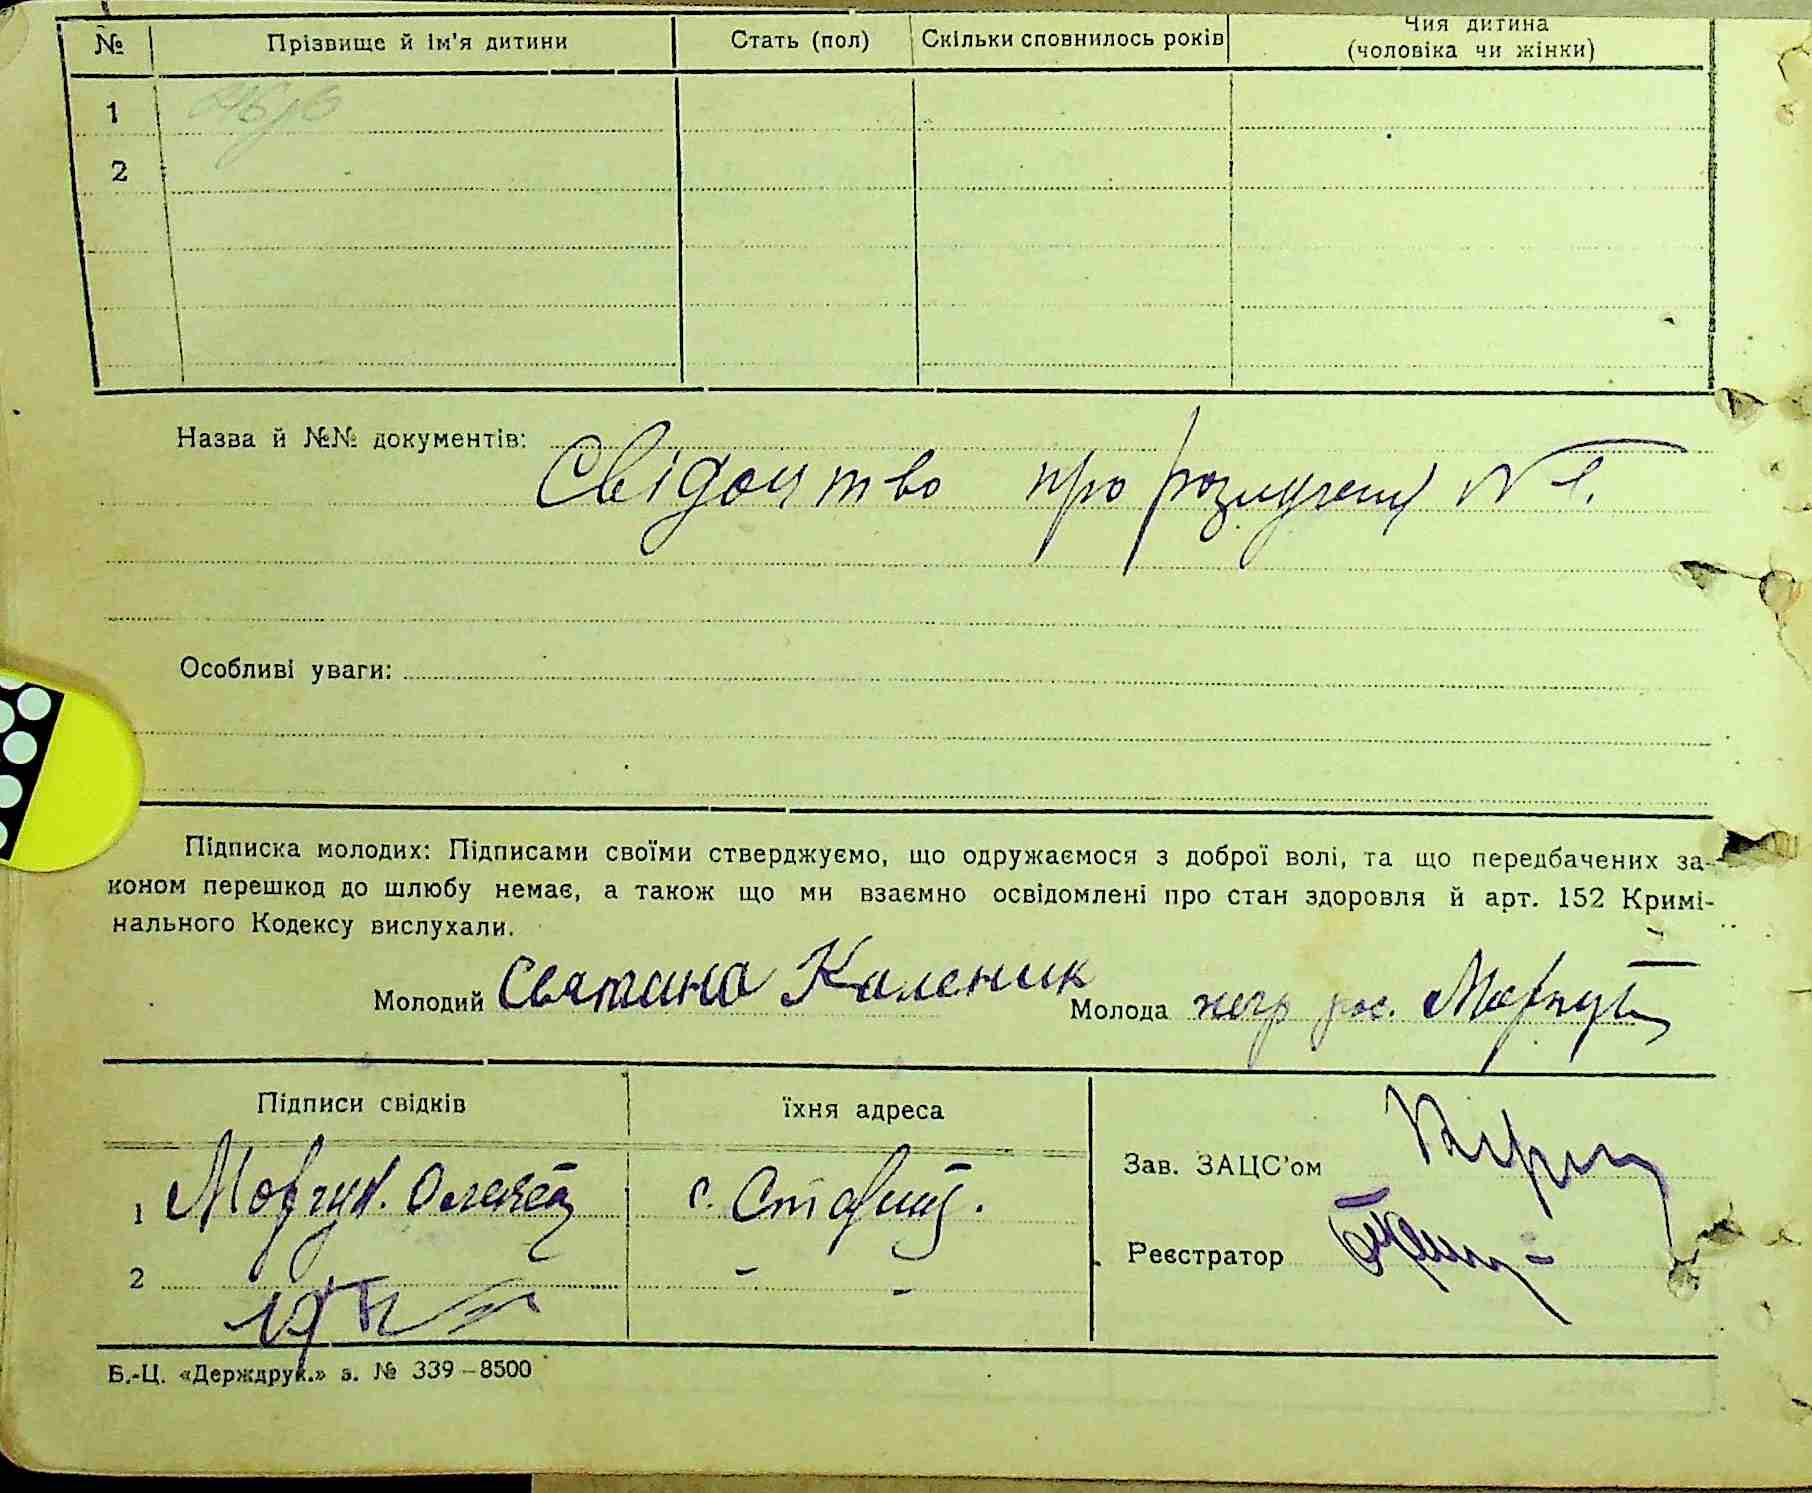 № Прізвище й ім'я дитини Стать (пол) Скільки сповнилось років Чия дитина
(чоловіка чи жінки)
1
2
Назва й №№ документів:
Свідоцтво про розлучення № 1.
Особливі уваги:
Підписка молодих: Підписами своїми стверджуємо, що одружаємося з доброї волі, та що передбачених за-
коном перешкод до шлюбу немає, а також що ми взаємно освідомлені про стан здоровля й арт. 152 Кримі-
нального Кодексу вислухали.
Молодий Каленик Молода
Підписи свідків їхня адреса
Зав. ЗАЦС'ом
1 с.
Реєстратор
2
Б.-Ц. «Держдрук.» з. № 339–8500